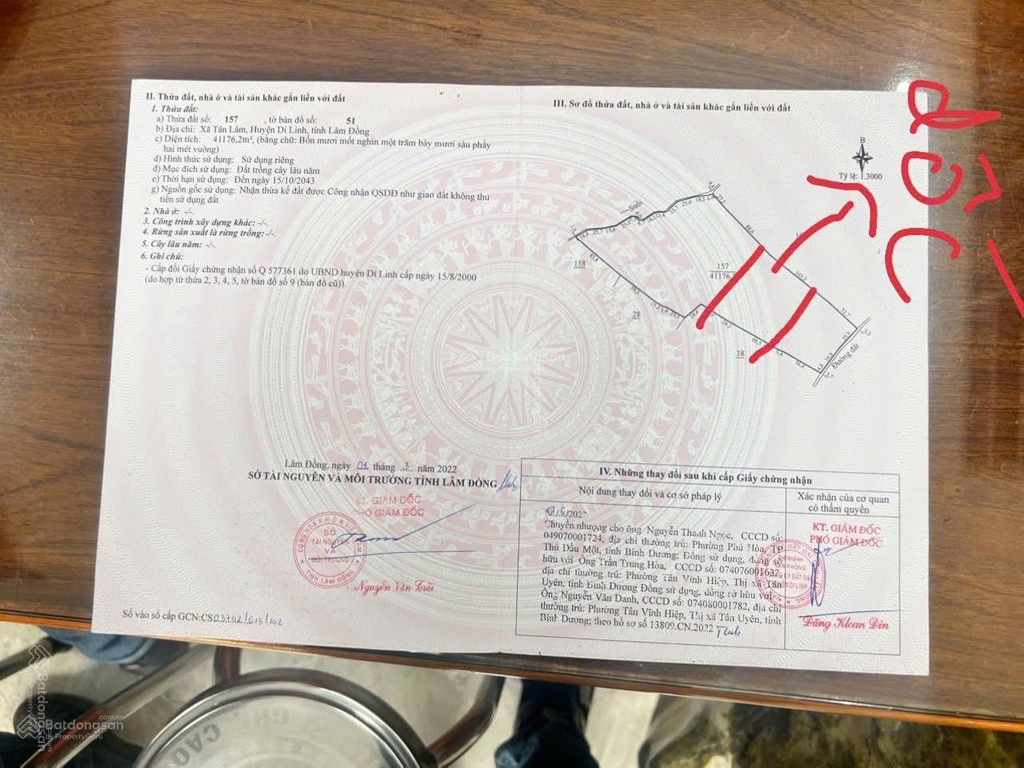 II. Thửa đất, nhà ở và tài sản khác gắn liền với đất
1. Thửa đất:
a) Thửa đất số: 157, tờ bản đồ số: 51
b) Địa chỉ: Xã Tân Lâm, Huyện Di Linh, tỉnh Lâm Đồng
c) Diện tích: 41176,2m², (bằng chữ: Bốn mươi mốt nghìn một trăm bảy mươi sáu phẩy
hai mét vuông)
d) Hình thức sử dụng: Sử dụng riêng
đ) Mục đích sử dụng: Đất trồng cây lâu năm
e) Thời hạn sử dụng: Đến ngày 15/10/2043
g) Nguồn gốc sử dụng: Nhận thừa kế đất được Công nhận QSDĐ như giao đất không thu
tiền sử dụng đất
2. Nhà ở: -/-
3. Công trình xây dựng khác: -/-
4. Rừng sản xuất là rừng trồng: -/-
5. Cây lâu năm: -/-
6. Ghi chú:
- Cấp đổi Giấy chứng nhận số Q 577361 do UBND huyện Di Linh cấp ngày 15/8/2000
(do hợp từ thửa 2, 3, 4, 5, tờ bản đồ số 9 (bản đồ cũ)).
Lâm Đồng, ngày 01 tháng năm 2022
SỞ TÀI NGUYÊN VÀ MÔI TRƯỜNG TỈNH LÂM ĐỒNG
KT. GIÁM ĐỐC
PHÓ GIÁM ĐỐC
SỞ
TÀI NGUYÊN
VÀ
MÔI TRƯỜNG
TỈNH LÂM ĐỒNG
Nguyễn Văn Trãi
Số vào sổ cấp GCN:CS
III. Sơ đồ thửa đất, nhà ở và tài sản khác gắn liền với đất
B
Tỷ lệ 1:3000
Suối
158
157
41176
28
38
Đường đất
IV. Những thay đổi sau khi cấp Giấy chứng nhận
Nội dung thay đổi và cơ sở pháp lý
Xác nhận của cơ quan
có thẩm quyền
Chuyển nhượng cho ông Nguyễn Thanh Ngọc, CCCD số:
049070001724, địa chỉ thường trú: Phường Phú Hòa, TP
Thủ Dầu Một, tỉnh Bình Dương; Đồng sử dụng, đồng sở
hữu với: Ông Trần Trung Hòa, CCCD số: 074076001632,
địa chỉ thường trú: Phường Tân Vĩnh Hiệp, Thị xã Tân
Uyên, tỉnh Bình Dương Đồng sử dụng, đồng sở hữu với:
Ông Nguyễn Văn Danh, CCCD số: 074080001782, địa chỉ
thường trú: Phường Tân Vĩnh Hiệp, Thị xã Tân Uyên, tỉnh
Bình Dương; theo hồ sơ số 13809.CN.2022
KT. GIÁM ĐỐC
PHÓ GIÁM ĐỐC
Đặng Kloan Đin
Batdongsan
.com.vn
by PropertyGuru